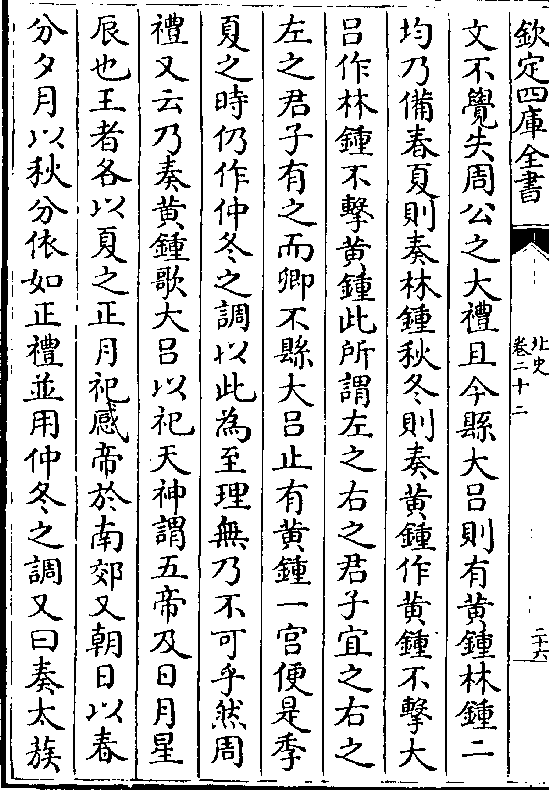 欽定四庫全書
北史
卷二十二
二十六
文不覺失周公之大禮且今縣大呂則有黄鍾林鍾二
均乃備春夏則奏林鍾秋冬則奏黄鍾作黄鍾不擊大
呂作林鍾不擊黄鍾此所謂左之右之君子宜之右之
左之君子有之而卿不縣大呂止有黄鍾一宫便是季
夏之時仍作仲冬之調以此為至理無乃不可乎然周
禮又云乃奏黄鍾歌大呂以祀天神謂五帝及日月星
辰也王者各以夏之正月祀感帝於南郊又朝日以春
分夕月以秋分依如正禮並用仲冬之調又曰奏太蔟